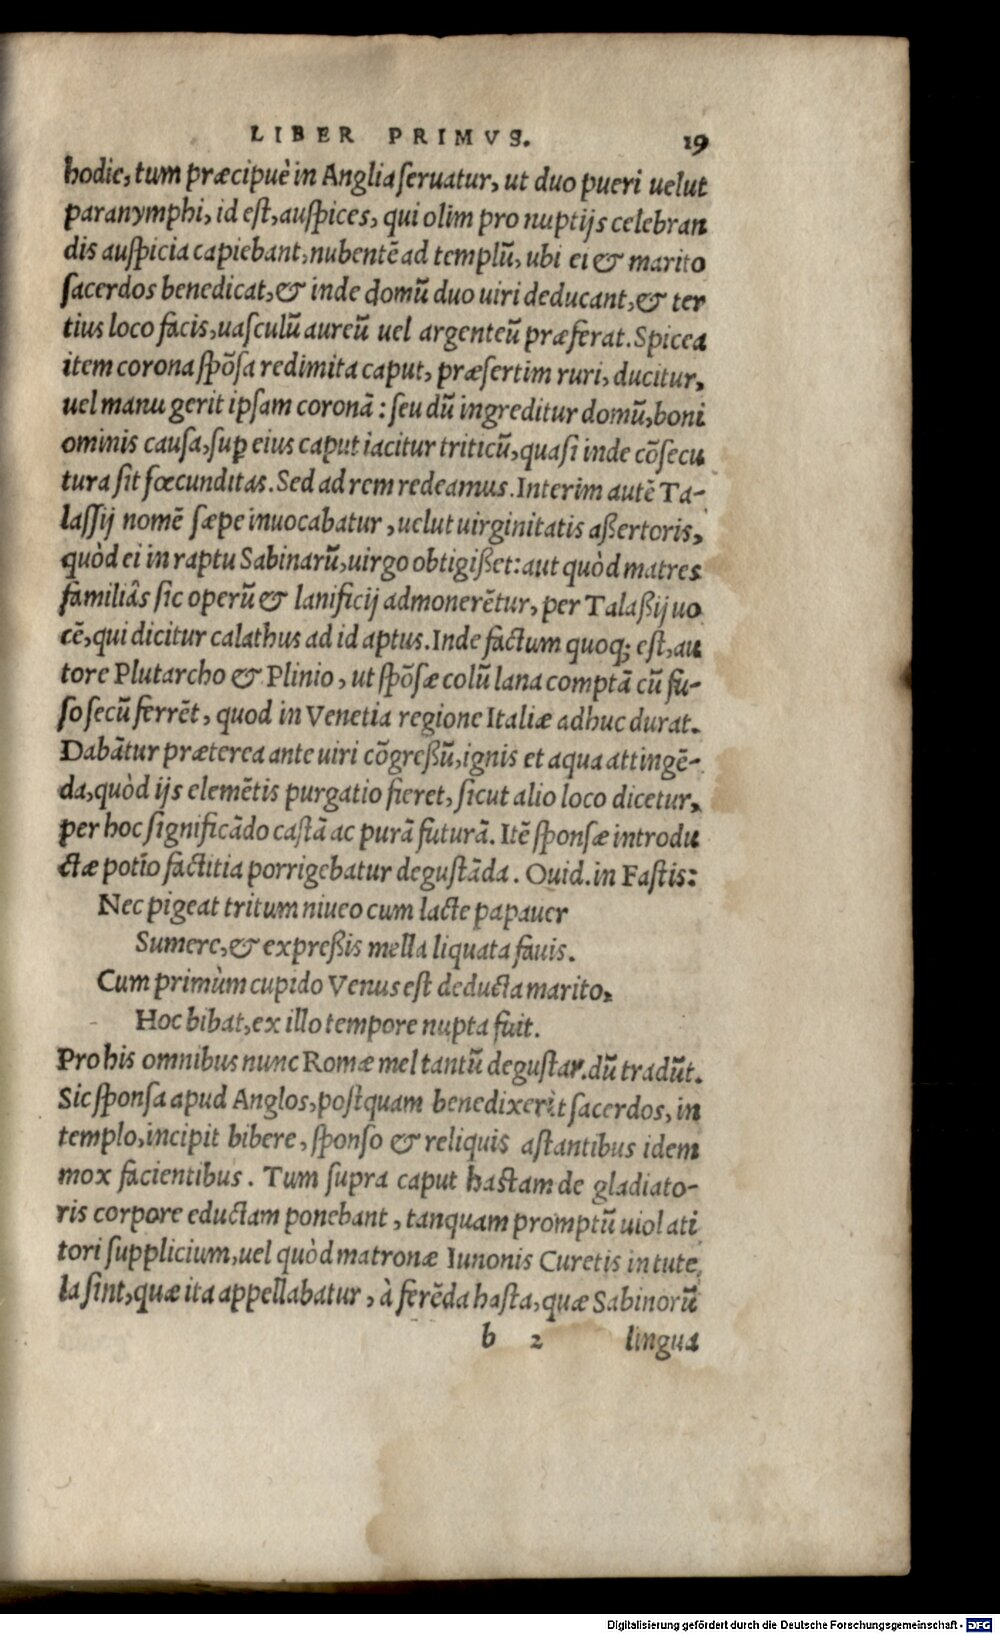 LIBER PRIMVS. 19
hodie, tum præcipuè in Anglia seruatur, ut duo pueri uelut
paranymphi, id est, auspices, qui olim pro nuptijs celebran
dis auspicia capiebant, nubentē ad templū, ubi ei & marito
sacerdos benedicat, & inde domū duo uiri deducant, & ter
tius loco facis, uasculū aureū uel argenteū præferat. Spicea
item corona spōsa redimita caput, præsertim ruri, ducitur,
uel manu gerit ipsam coronā: seu dū ingreditur domū, boni
ominis causa, suꝑ eius caput iacitur triticū, quasi inde cōsecu
tura sit fœcunditas. Sed ad rem redeamus. Interim autē Ta-
lassij nomē sæpe inuocabatur, uelut uirginitatis aßertoris,
quòd ei in raptu Sabinarū, uirgo obtigißet: aut quòd matres
familiâs sic operū & lanificij admonerētur, per Talaßij uo
cē, qui dicitur calathus ad id aptus. Inde factum quoq; est, au
tore Plutarcho & Plinio, ut spōsæ colū lana comptā cū fu-
so secū ferrēt, quod in Venetia regione Italiæ adhuc durat.
Dabātur præterea ante uiri cōgreßū, ignis et aqua attingē-
da, quòd ijs elemētis purgatio fieret, sicut alio loco dicetur,
per hoc significādo castā ac purā futurā. Itē sponsæ introdu
ctæ potio factitia porrigebatur degustāda. Ouid. in Fastis:
Nec pigeat tritum niueo cum lacte papauer
Sumere, & expreßis mella liquata fauis.
Cum primùm cupido Venus est deducta marito,
Hoc bibat, ex illo tempore nupta fuit.
Pro his omnibus nunc Romæ mel tantū degustandū tradūt.
Sic sponsa apud Anglos, postquam benedixerit sacerdos, in
templo, incipit bibere, sponso & reliquis astantibus idem
mox facientibus. Tum supra caput hastam de gladiato-
ris corpore eductam ponebant, tanquam promptū uiolati
tori supplicium, uel quòd matronæ Iunonis Curetis in tute
la sint, quæ ita appellabatur, à ferēda hasta, quæ Sabinorū
b 2 lingua
Digitalisierung gefördert durch die Deutsche Forschungsgemeinschaft - DFG